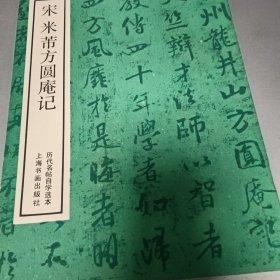 宋 米芾方圆庵记
历代名帖自学选本
上海书画出版社
州龍井山方圓庵
辯才法師以智者
傳四十年學者如歸
四方風靡於是晦者明